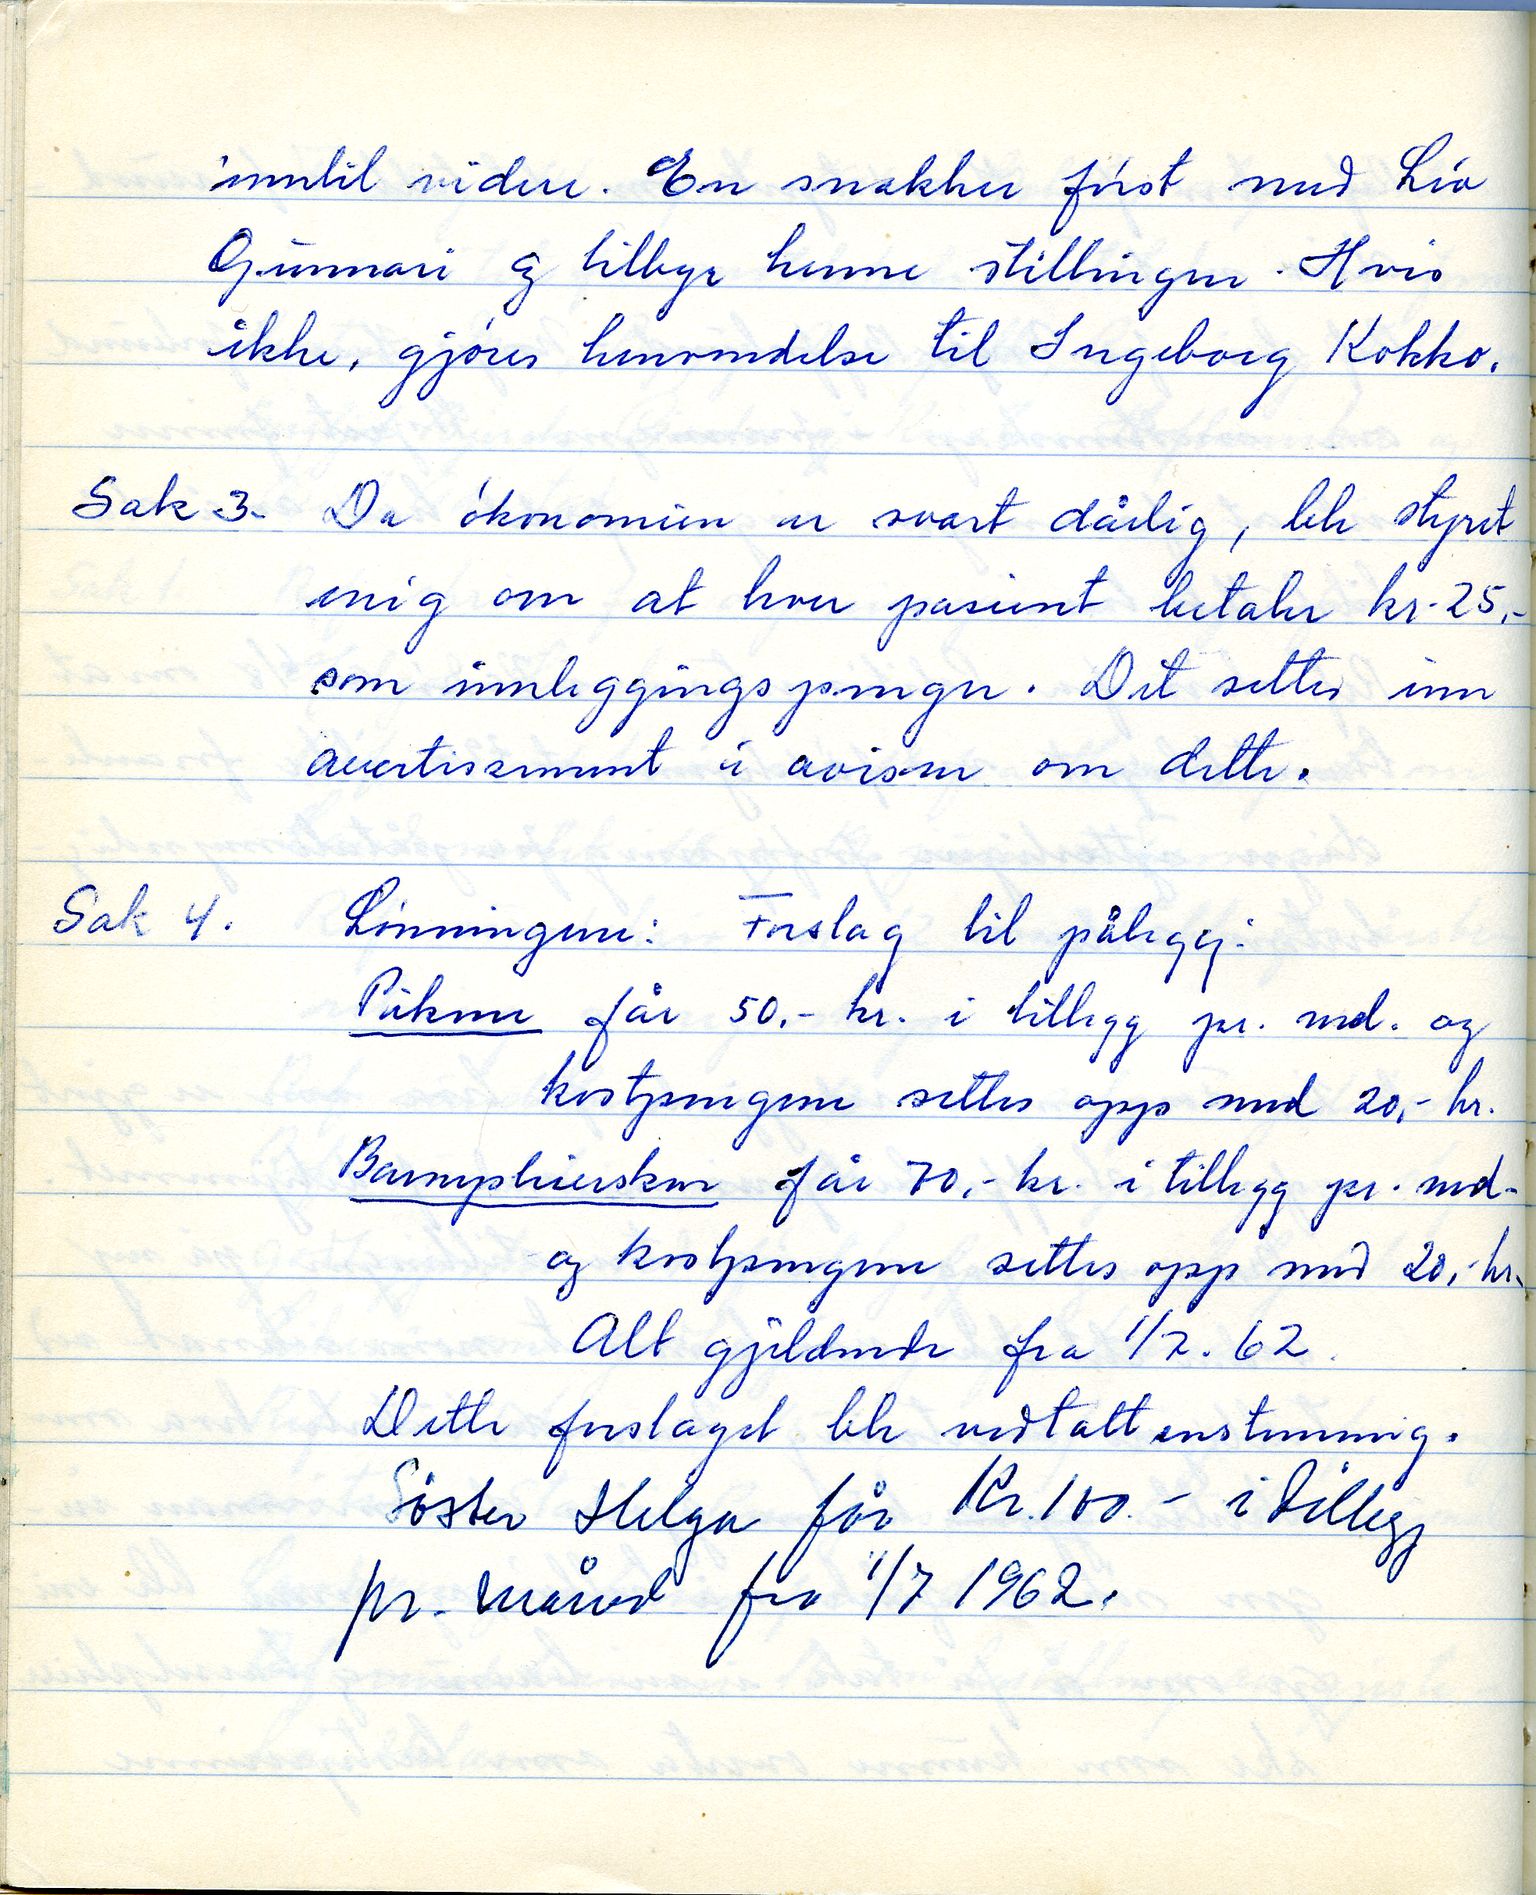 inntil videre. En snakker först med Liv
Gunnari og tilbyr henne stillingen. Hvis
ikke, gjöres henvendelse til Ingeborg Kokko.
Sak 3. Da ökonomien er svært dårlig, ble styret
enig om at hver pasient betaler kr. 25,-
som innleggingspenger. Det settes inn
avertissement i avisen om dette.
Sak 4. Lönningene: Forslag til pålegg:
Pikene får 50,- kr. i tillegg pr. md. og
kostpengene settes opp med 20,- kr.
Barnepleiersken får 70,- kr. i tillegg pr. md.
og kostpengene settes opp med 20,- kr.
Alt gjeldende fra 1/7. 62.
Dette forslaget ble vedtatt enstemmig.
Söster Helga får Kr. 100.- i tillegg
pr. måned fra 1/7 1962.